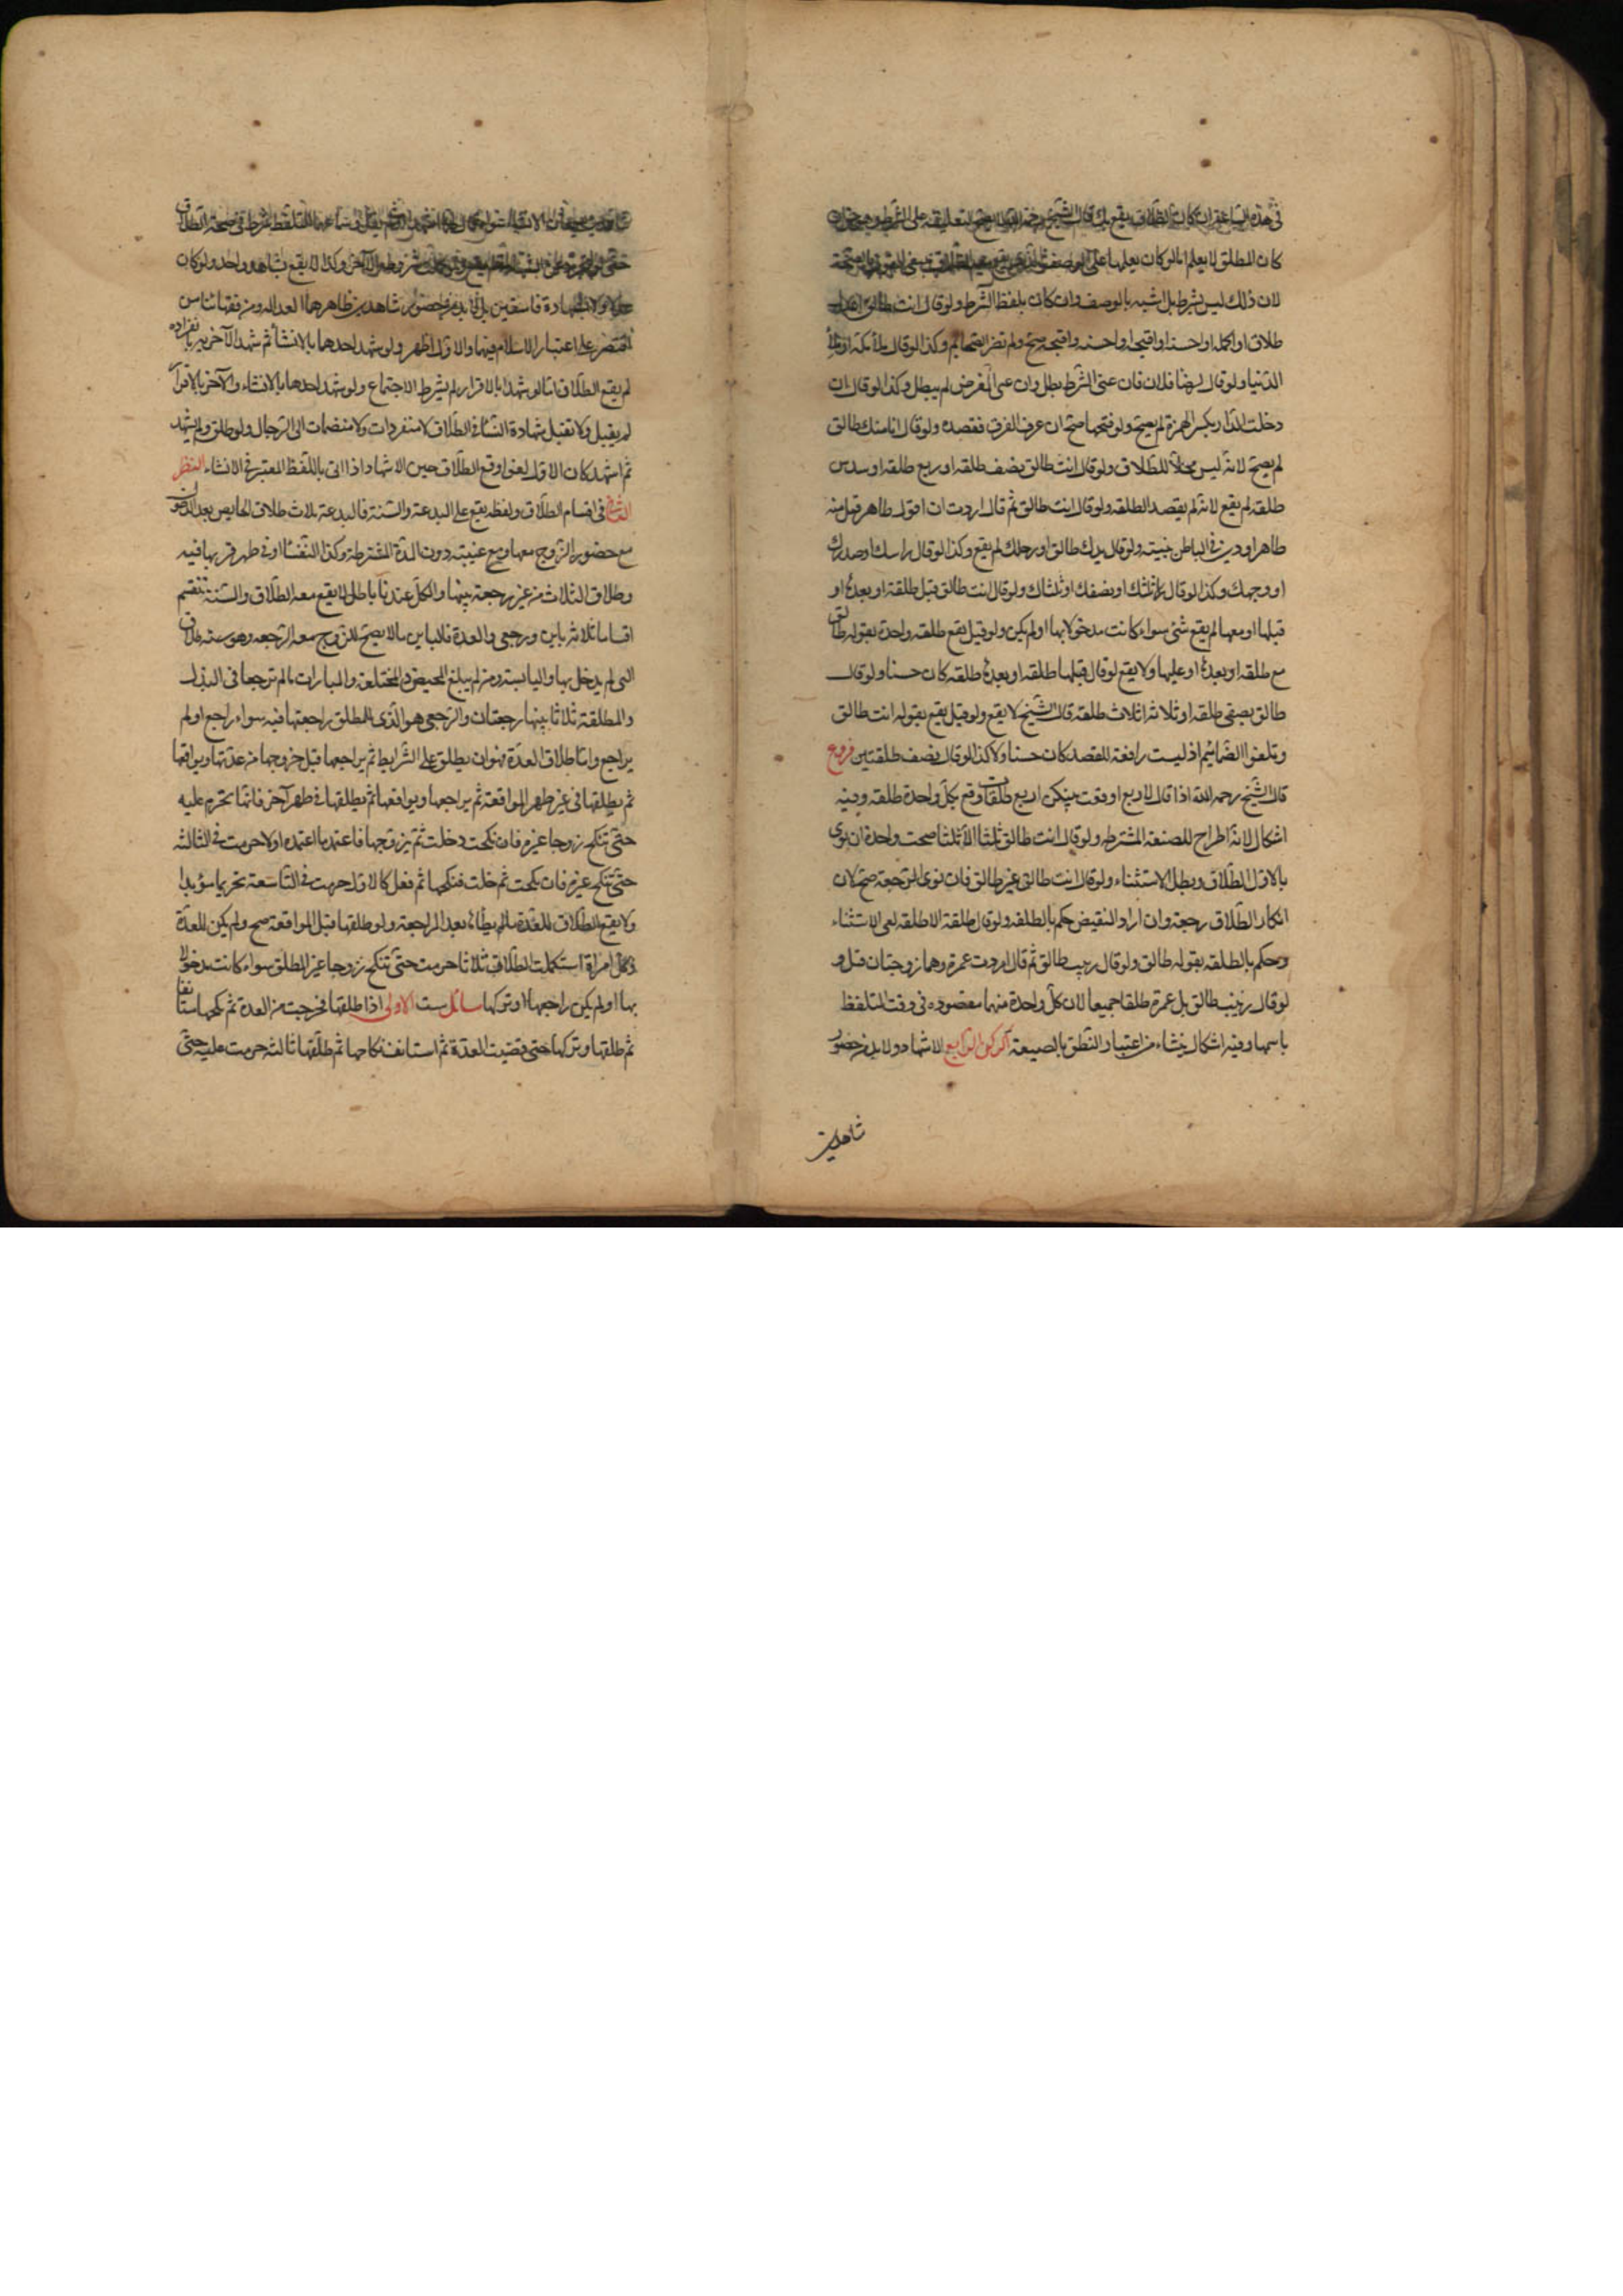 في هذه الساعة ان كان الطلاق يقع بك قال الشيخ رحمه الله لا يصح لتعليقه على الشرط وهو حق ان
كان المطلق لا يعلم اما لو كان يعلمها على الوصف الذي يقع معه الطلاق ينبغي القول بالصحة
لان ذلك ليس بشرط بل اشبه بالوصف وان كان بلفظ الشرط ولو قال انت طالق اعدل
طلاق او اكمله او احسنه او اقبحه او احسنه واقبحه صح ولم تضر الضمايم وكذا لو قال ملأ مكة او ملأ
الدنيا ولو قال لرضا فلان فان عنى الشرط بطل وان عنى الغرض لم يبطل وكذا لو قال ان
دخلت الدار بكسر الهمزة لم يصح ولو فتحها صح ان عرف الفرق فقصده ولو قال انا منك طالق
لم يصح لانه ليس محلا للطلاق ولو قال انت طالق نصف طلقه او ربع طلقه او سدس
طلقه لم يقع لانه لم يقصد الطلقه ولو قال انت طالق ثم قال اردت ان اقول طاهر قبل منه
ظاهرا ودين في الباطن بنيته ولو قال يدك طالق او رجلك لم يقع وكذا لو قال راسك او صدرك
او وجهك وكذا لو قال ثلثك او نصفك او ثلثاك ولو قال انت طالق قبل طلقة او بعدها او
قبلها او معها لم يقع شئ سواء كانت مدخولا بها او لم يكن ولو قيل يقع طلقه واحدة بقوله طالق
مع طلقه او بعدها او عليها ولا يقع لو قال قبلها طلقه او بعدها طلقه كان حسنا ولو قال
طالق نصفي طلقه او ثلاثه اثلاث طلقه قال الشيخ لا يقع ولو قيل يقع بقوله انت طالق
وتلغوا الضمائم اذ ليست رافعة للقصد كان حسنا ولا كذا لو قال نصف طلقتين فروع
قال الشيخ رحمه الله اذا قال لاربع اوقعت بينكن اربع طلقات وقع بكل واحدة طلقه وفيه
اشكال لانه اطراح للصيغة المشترطه ولو قال انت طالق ثلثا الا ثلثا صحت واحدة ان نوى
بالاول الطلاق وبطل الاستثناء ولو قال انت طالق غير طالق فان نوى الرجعة صح لان
انكار الطلاق رجعة وان اراد النقيض حكم بالطلقه ولو قال طلقة الا طلقه لغى الاستثناء
وحكم بالطلقه بقوله طالق ولو قال زينب طالق ثم قال اردت عمرة وهما زوجتان قبل و
لو قال زينب طالق بل عمرة طلقتا جميعا لان كل واحدة منهما مقصوده في وقت التلفظ
باسمها وفيه اشكال ينشاء من اعتبار النطق بالصيغة الركن الرابع الاشهاد ولا بد من حضور
شاهدين
شاهدين يسمعان الانشاء سواء قال لهما اشهدا او لم يقل وسماعهما التلفظ شرط في صحة الطلاق
حتى لو تجرد عن الشهادة لم يقع ولو كملت شروطه الآخر وكذا لا يقع بشاهد واحد ولو كان
عدلا ولا بشهادة فاسقين بل لا بد من حضور شاهدين ظاهرهما العداله ومن فقهائنا من
اقتصر على اعتبار الاسلام فيهما والاول اظهر ولو شهد احدهما بالانشاء ثم شهد الآخر به بانفراده
لم يقع الطلاق اما لو شهدا بالاقرار لم يشترط الاجتماع ولو شهد احدهما بالانشاء والآخر بالاقرار
لم يقبل ولا تقبل شهادة النساء في الطلاق لا منفردات ولا منضمات الى الرجال ولو طلق ولم يشهد
ثم اشهد كان الاول لغوا وقع الطلاق حين الاشهاد اذا اتى باللفظ المعتبر في الانشاء النظر
الثاني في اقسام الطلاق ولفظه يقع على البدعة والسنة فالبدعة ثلاث طلاق الحايض بعد الدخول
مع حضور الزوج معها ومع غيبته دون المدة المشترطة وكذا النفساء او في طهر قربها فيه
وطلاق الثلاث من غير رجعة بينها والكل عندنا باطل لا يقع معه الطلاق والسنة تنقسم
اقساما ثلاثه باين ورجعي والعدة فالباين ما لا يصح للزوج معه الرجعه وهو سته طلاق
التي لم يدخل بها واليايسة ومن لم يبلغ المحيض والمختلعة والمبارات ما لم ترجعا في البذل
والمطلقة ثلاثا بينها رجعتان والرجعي هو الذي للمطلق مراجعتها فيه سواء راجع او لم
يراجع واما طلاق العدة فهو ان يطلق على الشرايط ثم يراجعها قبل خروجها من عدتها ويواقعها
ثم يطلقها في غير طهر المواقعة ثم يراجعها ويواقعها ثم يطلقها في طهر آخر فانها تحرم عليه
حتى تنكح زوجا غيره فان نكحت وخلت ثم تزوجها فاعتمد ما اعتمده اولا حرمت في الثالثه
حتى تنكح غيره فان نكحت ثم خلت فنكحها ثم فعل كالاول حرمت في التاسعة تحريما مؤبدا
ولا يقع الطلاق للعدة ما لم يطاها بعد المراجعة ولو طلقها قبل المواقعة صح ولم يكن للعدة
وكل امراة استكملت الطلاق ثلاثا حرمت حتى تنكح زوجا غير المطلق سواء كانت مدخولا
بها او لم يكن راجعها او تركها مسائل ست الاولى اذا طلقها فخرجت من العدة ثم نكحها مستانفا
ثم طلقها وتركها حتى قضيت العدة ثم استانف نكاحها ثم طلقها ثالثه حرمت عليه حتى